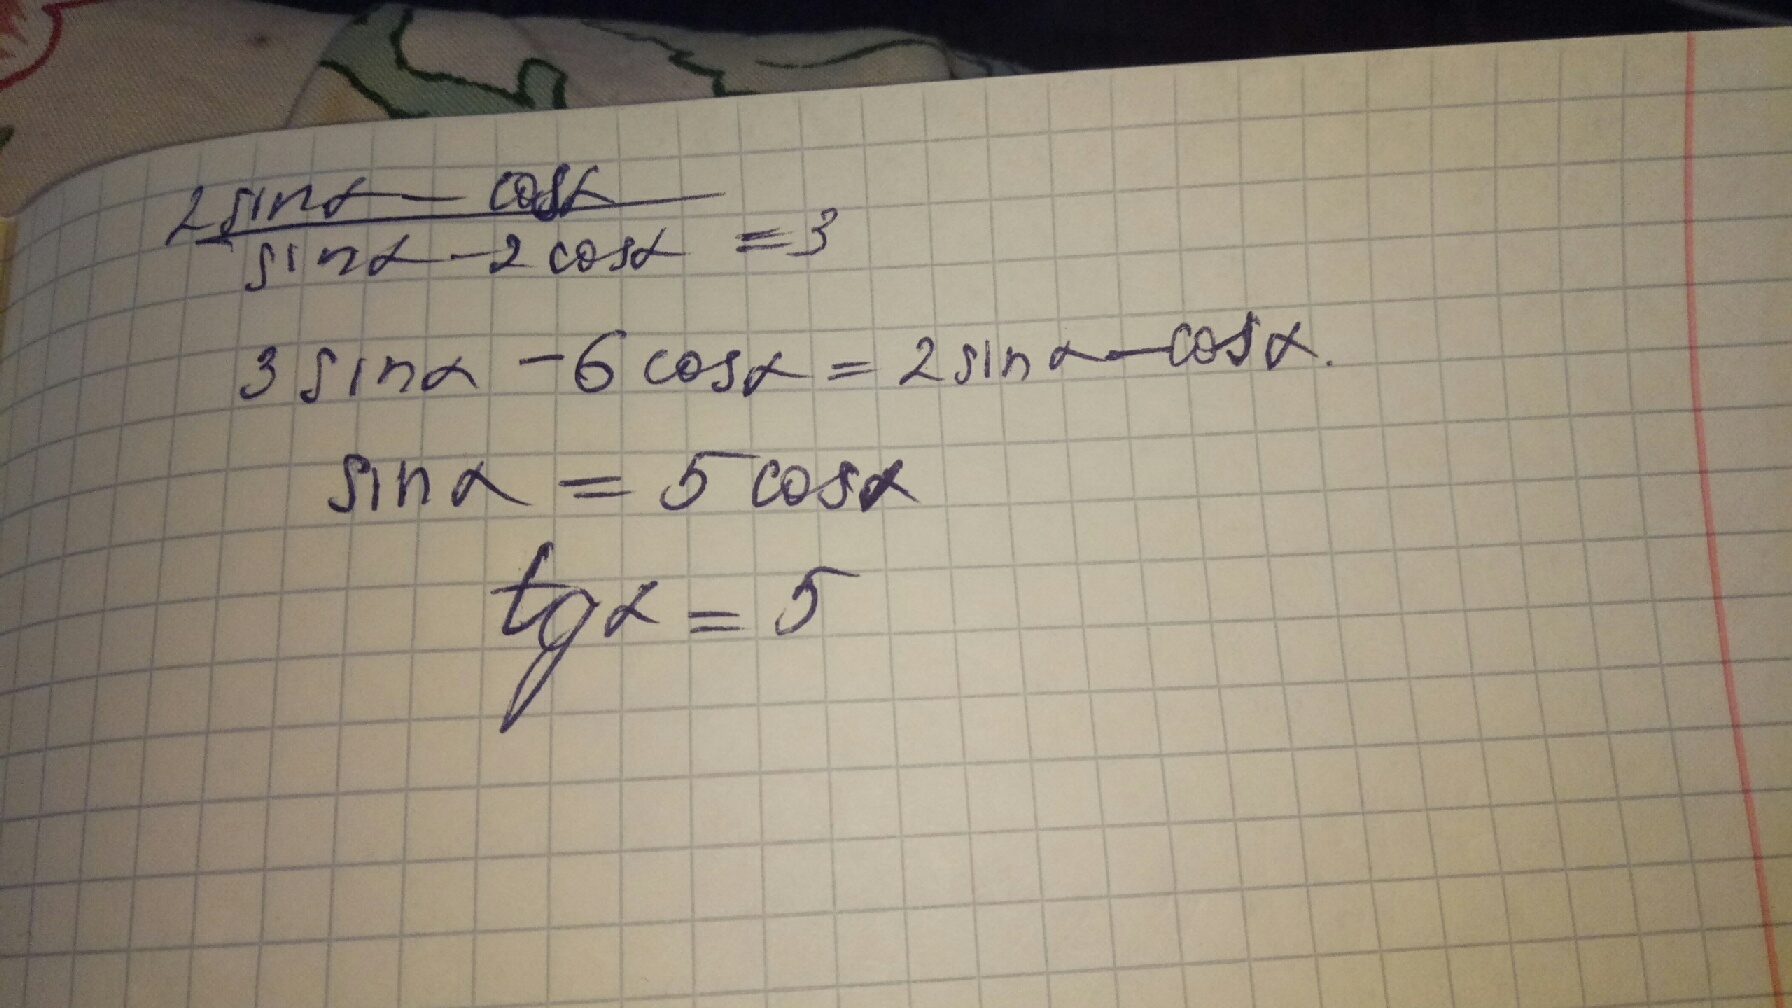 2sinα - cosα
sinα - 2cosα = 3
3sinα - 6cosα = 2sinα - cosα.
sinα = 5cosα
tgα = 5